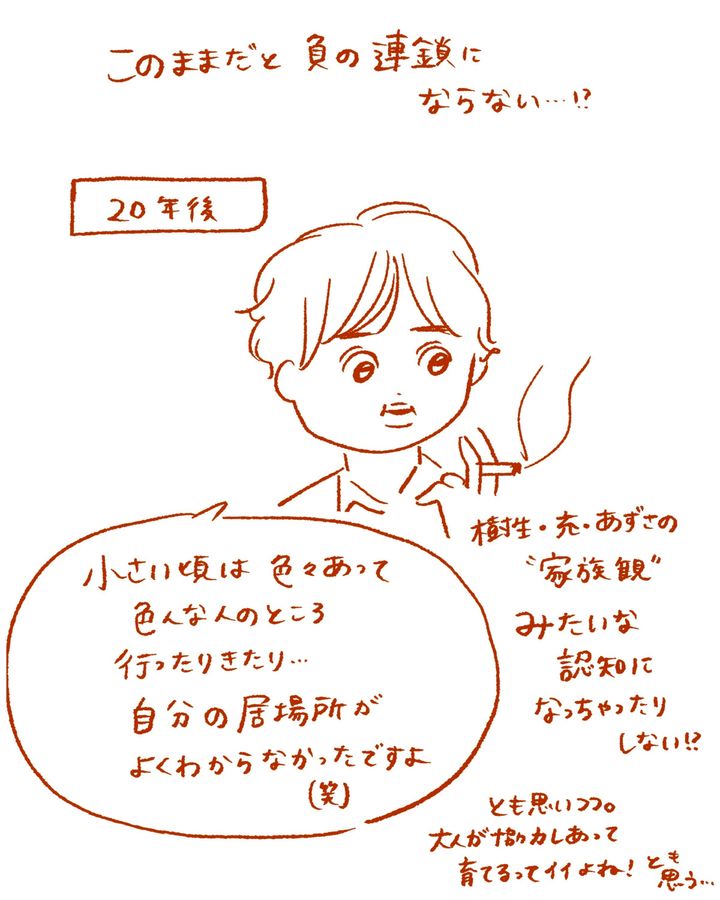 このままだと 負の連鎖に
ならない…!?
20年後
小さい頃は 色々あって
色んな人のところ
行ったりきたり…
自分の居場所が
よくわからなかったですよ
(笑)
樹生・充・あずさの
"家族観"
みたいな
認知に
なっちゃったり
しない!?
とも思いつつ。
大人が協力しあって
育てるってイイよね! とも
思う…